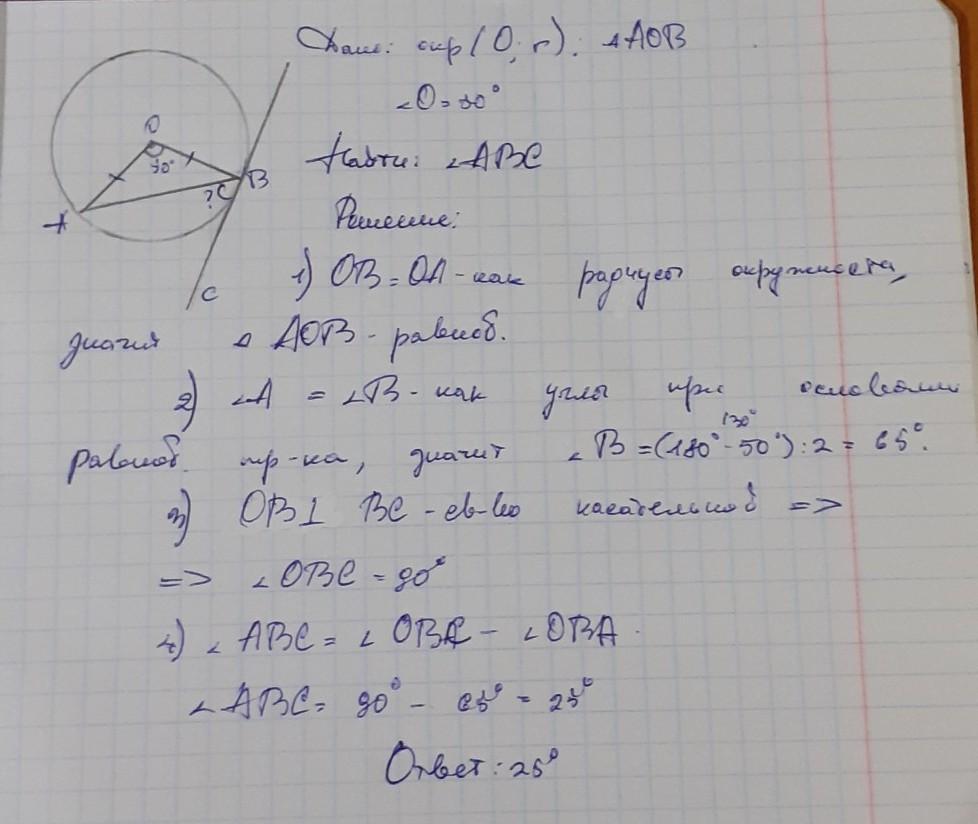 Дано: окр(O; r). ΔAOB
∠O = 50°
Найти: ∠ABC
Решение:
O
50°
B
?
A
C
1) OB = OA - как радиусы окружности,
значит Δ AOB - равноб.
2) ∠A = ∠B - как углы при основании
130°
равноб. тр-ка, значит ∠B = (180° - 50°) : 2 = 65°.
3) OB⊥ BC - св-во касательной =>
=> ∠OBC = 90°
4) ∠ABC = ∠OBC - ∠OBA.
∠ABC = 90° - 65° = 25°
Ответ: 25°